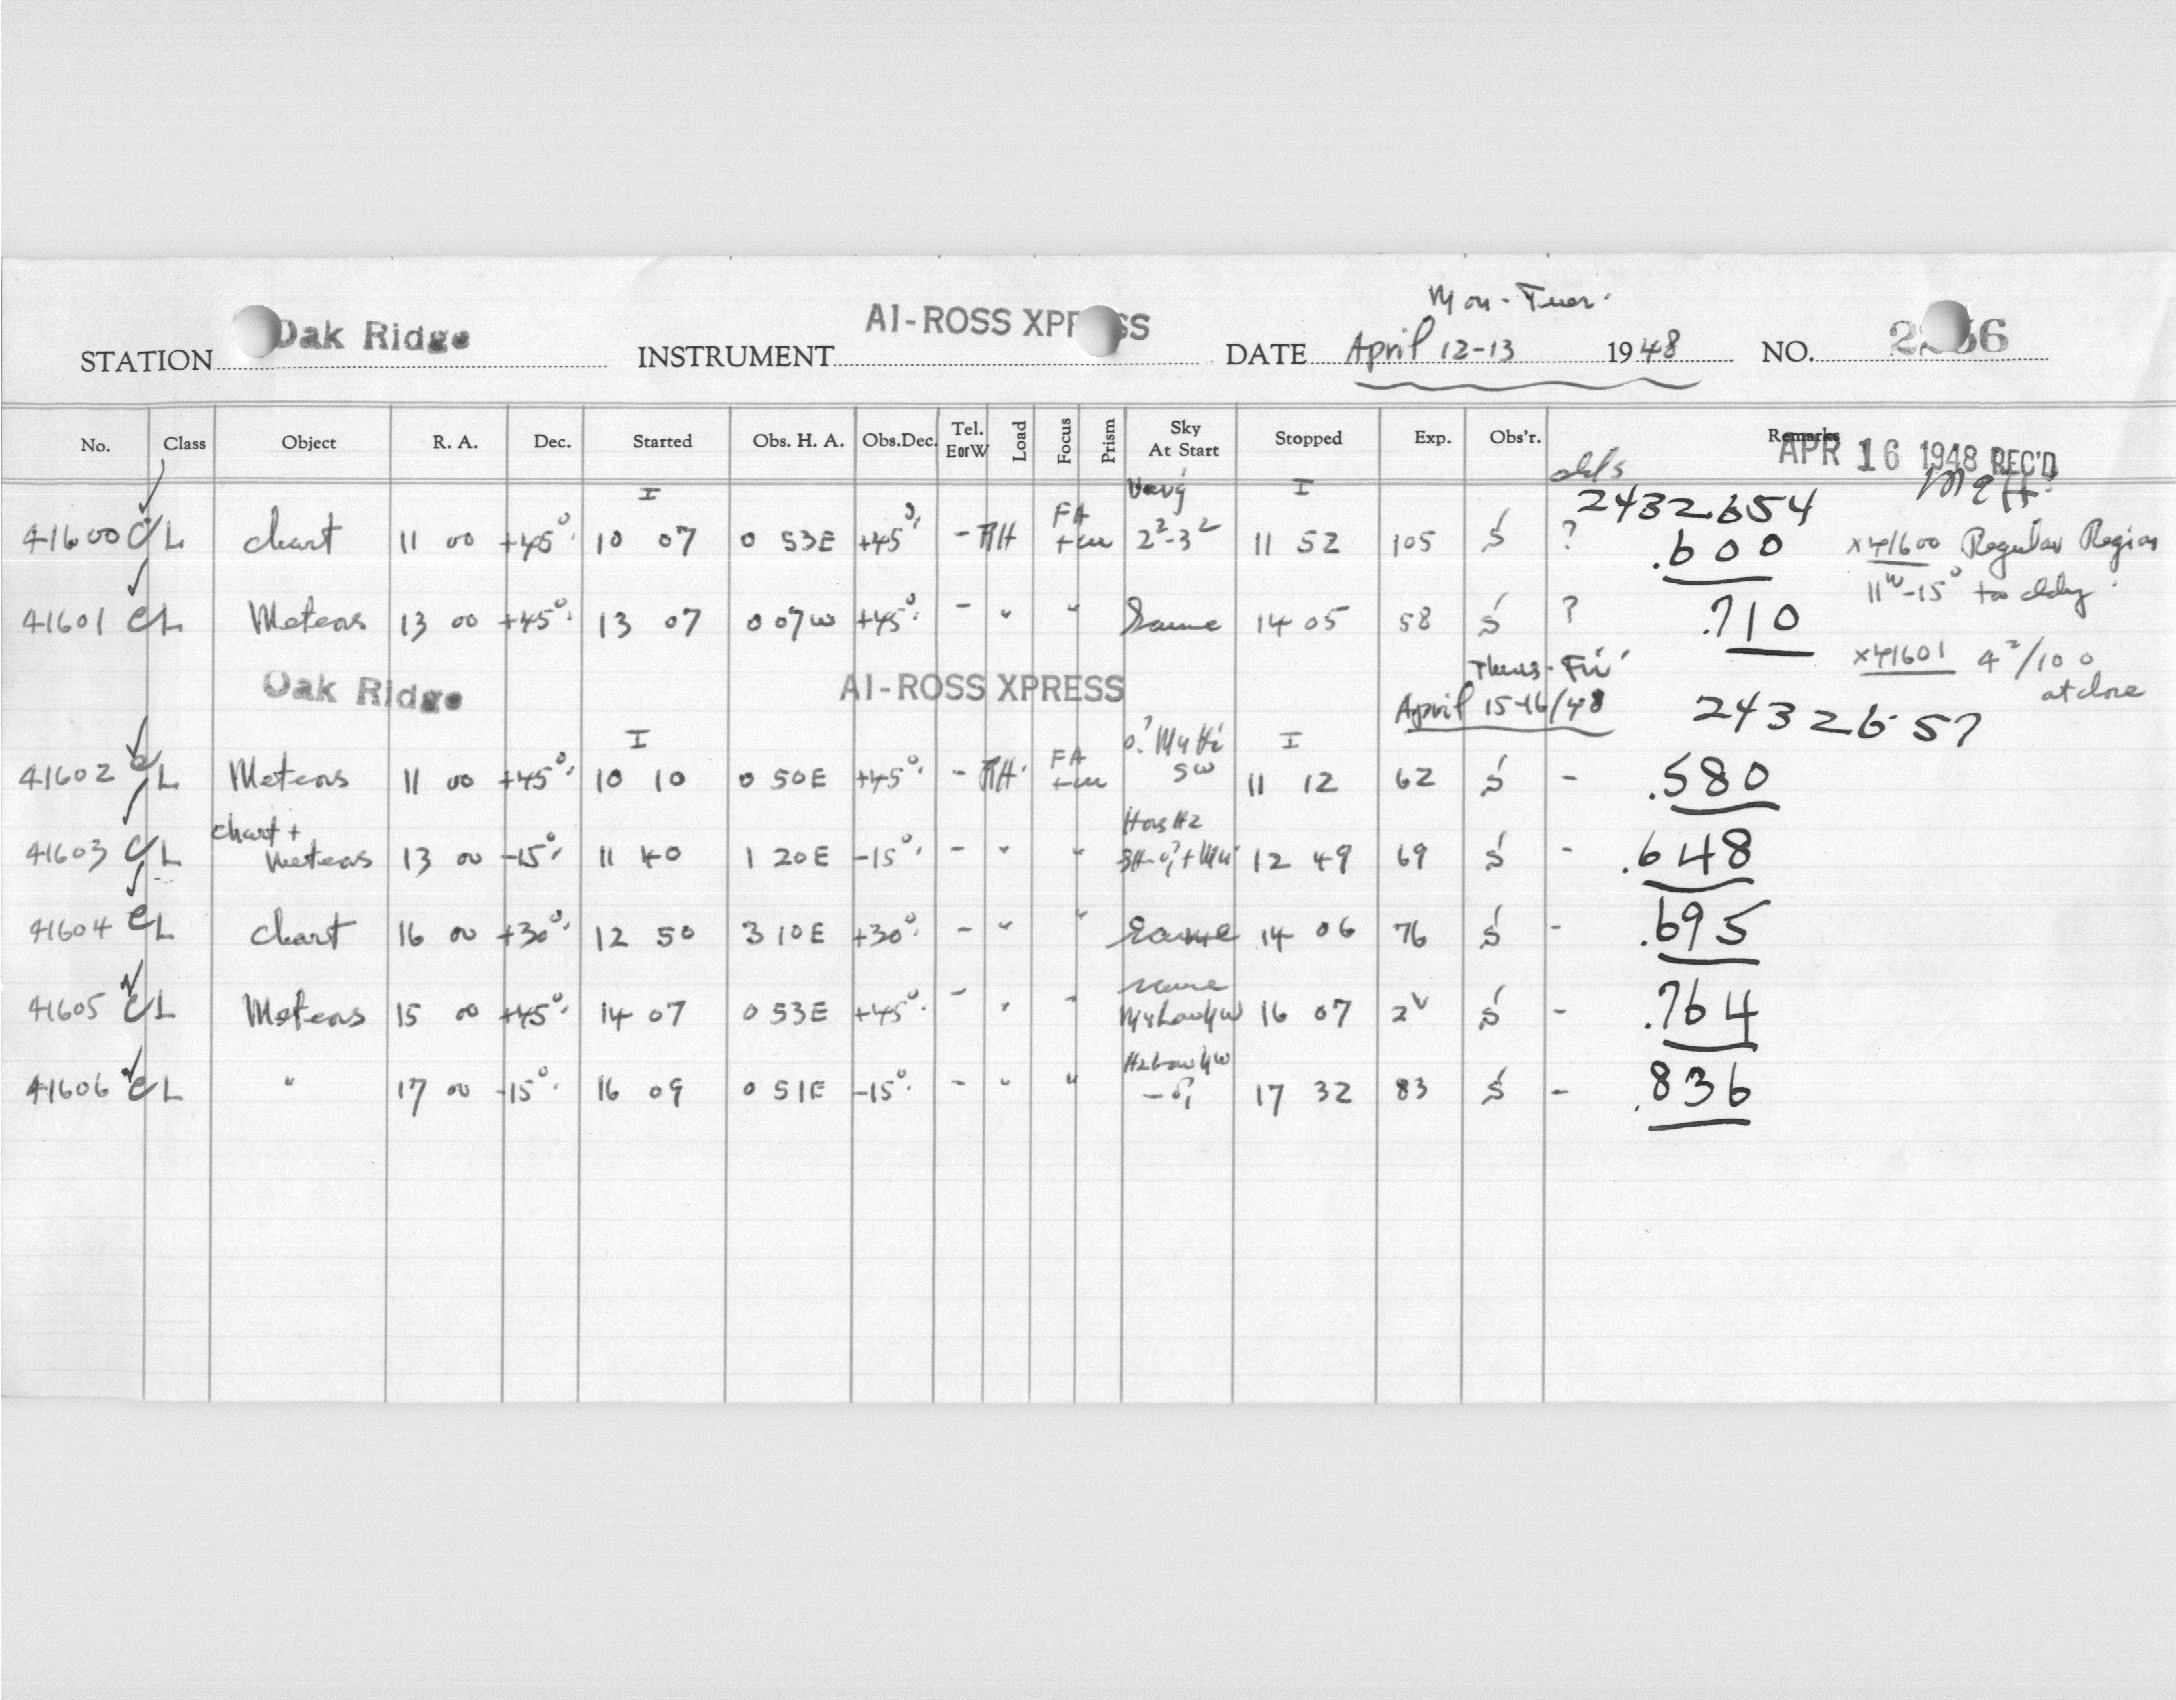 Mon - Tues.
STATION Oak Ridge INSTRUMENT AI-ROSS XPRESS DATE April 12-13 1948 NO.
No. Class Object R. A. Dec. Started Obs. H. A. Obs.Dec. Tel. E or W Load Focus Prism Sky At Start Stopped Exp. Obs'r. Remarks
APR 16 1948 REC'D
I I 2432654
41600 C L Chart 11 00 +45° 10 07 0 53E +45° - RH FA 2²-3² 11 52 105 S ? .600 x41600 Regular Region
11ʰ-15° too cldy.
41601 C L Meteors 13 00 +45° 13 07 0 07W +45° - " " Same 14 05 58 S ? .710
x41601 4²/100
at close
Oak Ridge AI-ROSS XPRESS Thurs - Fri
April 15-16/48 2432657
I I
41602 C L Meteors 11 00 +45° 10 10 0 50E +45° - RH FA SW 11 12 62 S - .580
41603 C L Chart + Meteors 13 00 -15° 11 40 1 20E -15° - " " 12 49 69 S - .648
41604 C L Chart 16 00 +30° 12 50 3 10E +30° - " " Same 14 06 76 S - .695
41605 C L Meteors 15 00 +45° 14 07 0 53E +45° - " " same 16 07 2ʰ S - .764
41606 C L " 17 00 -15° 16 09 0 51E -15° - " " 17 32 83 S - .836